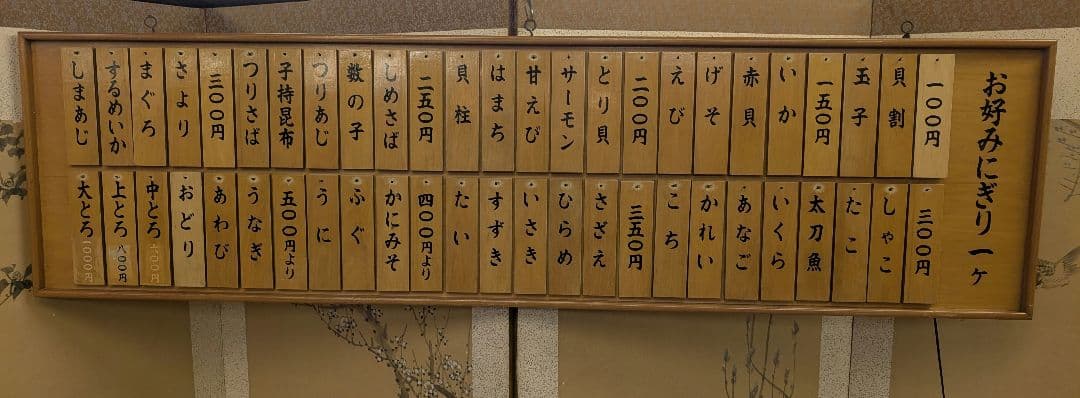 お好みにぎり一ヶ
一〇〇円
貝割
玉子
一五〇円
いか
赤貝
げそ
えび
二〇〇円
とり貝
サーモン
甘えび
はまち
貝柱
二五〇円
しめさば
数の子
つりあじ
子持昆布
つりさば
三〇〇円
さより
まぐろ
するめいか
しまあじ
三〇〇円
しゃこ
たこ
太刀魚
いくら
あなご
かれい
こち
三五〇円
さざえ
ひらめ
いさき
すずき
たい
四〇〇円より
かにみそ
ふぐ
うに
五〇〇円より
うなぎ
あわび
おどり
中とろ
上とろ 八〇〇円
大とろ 一〇〇〇円